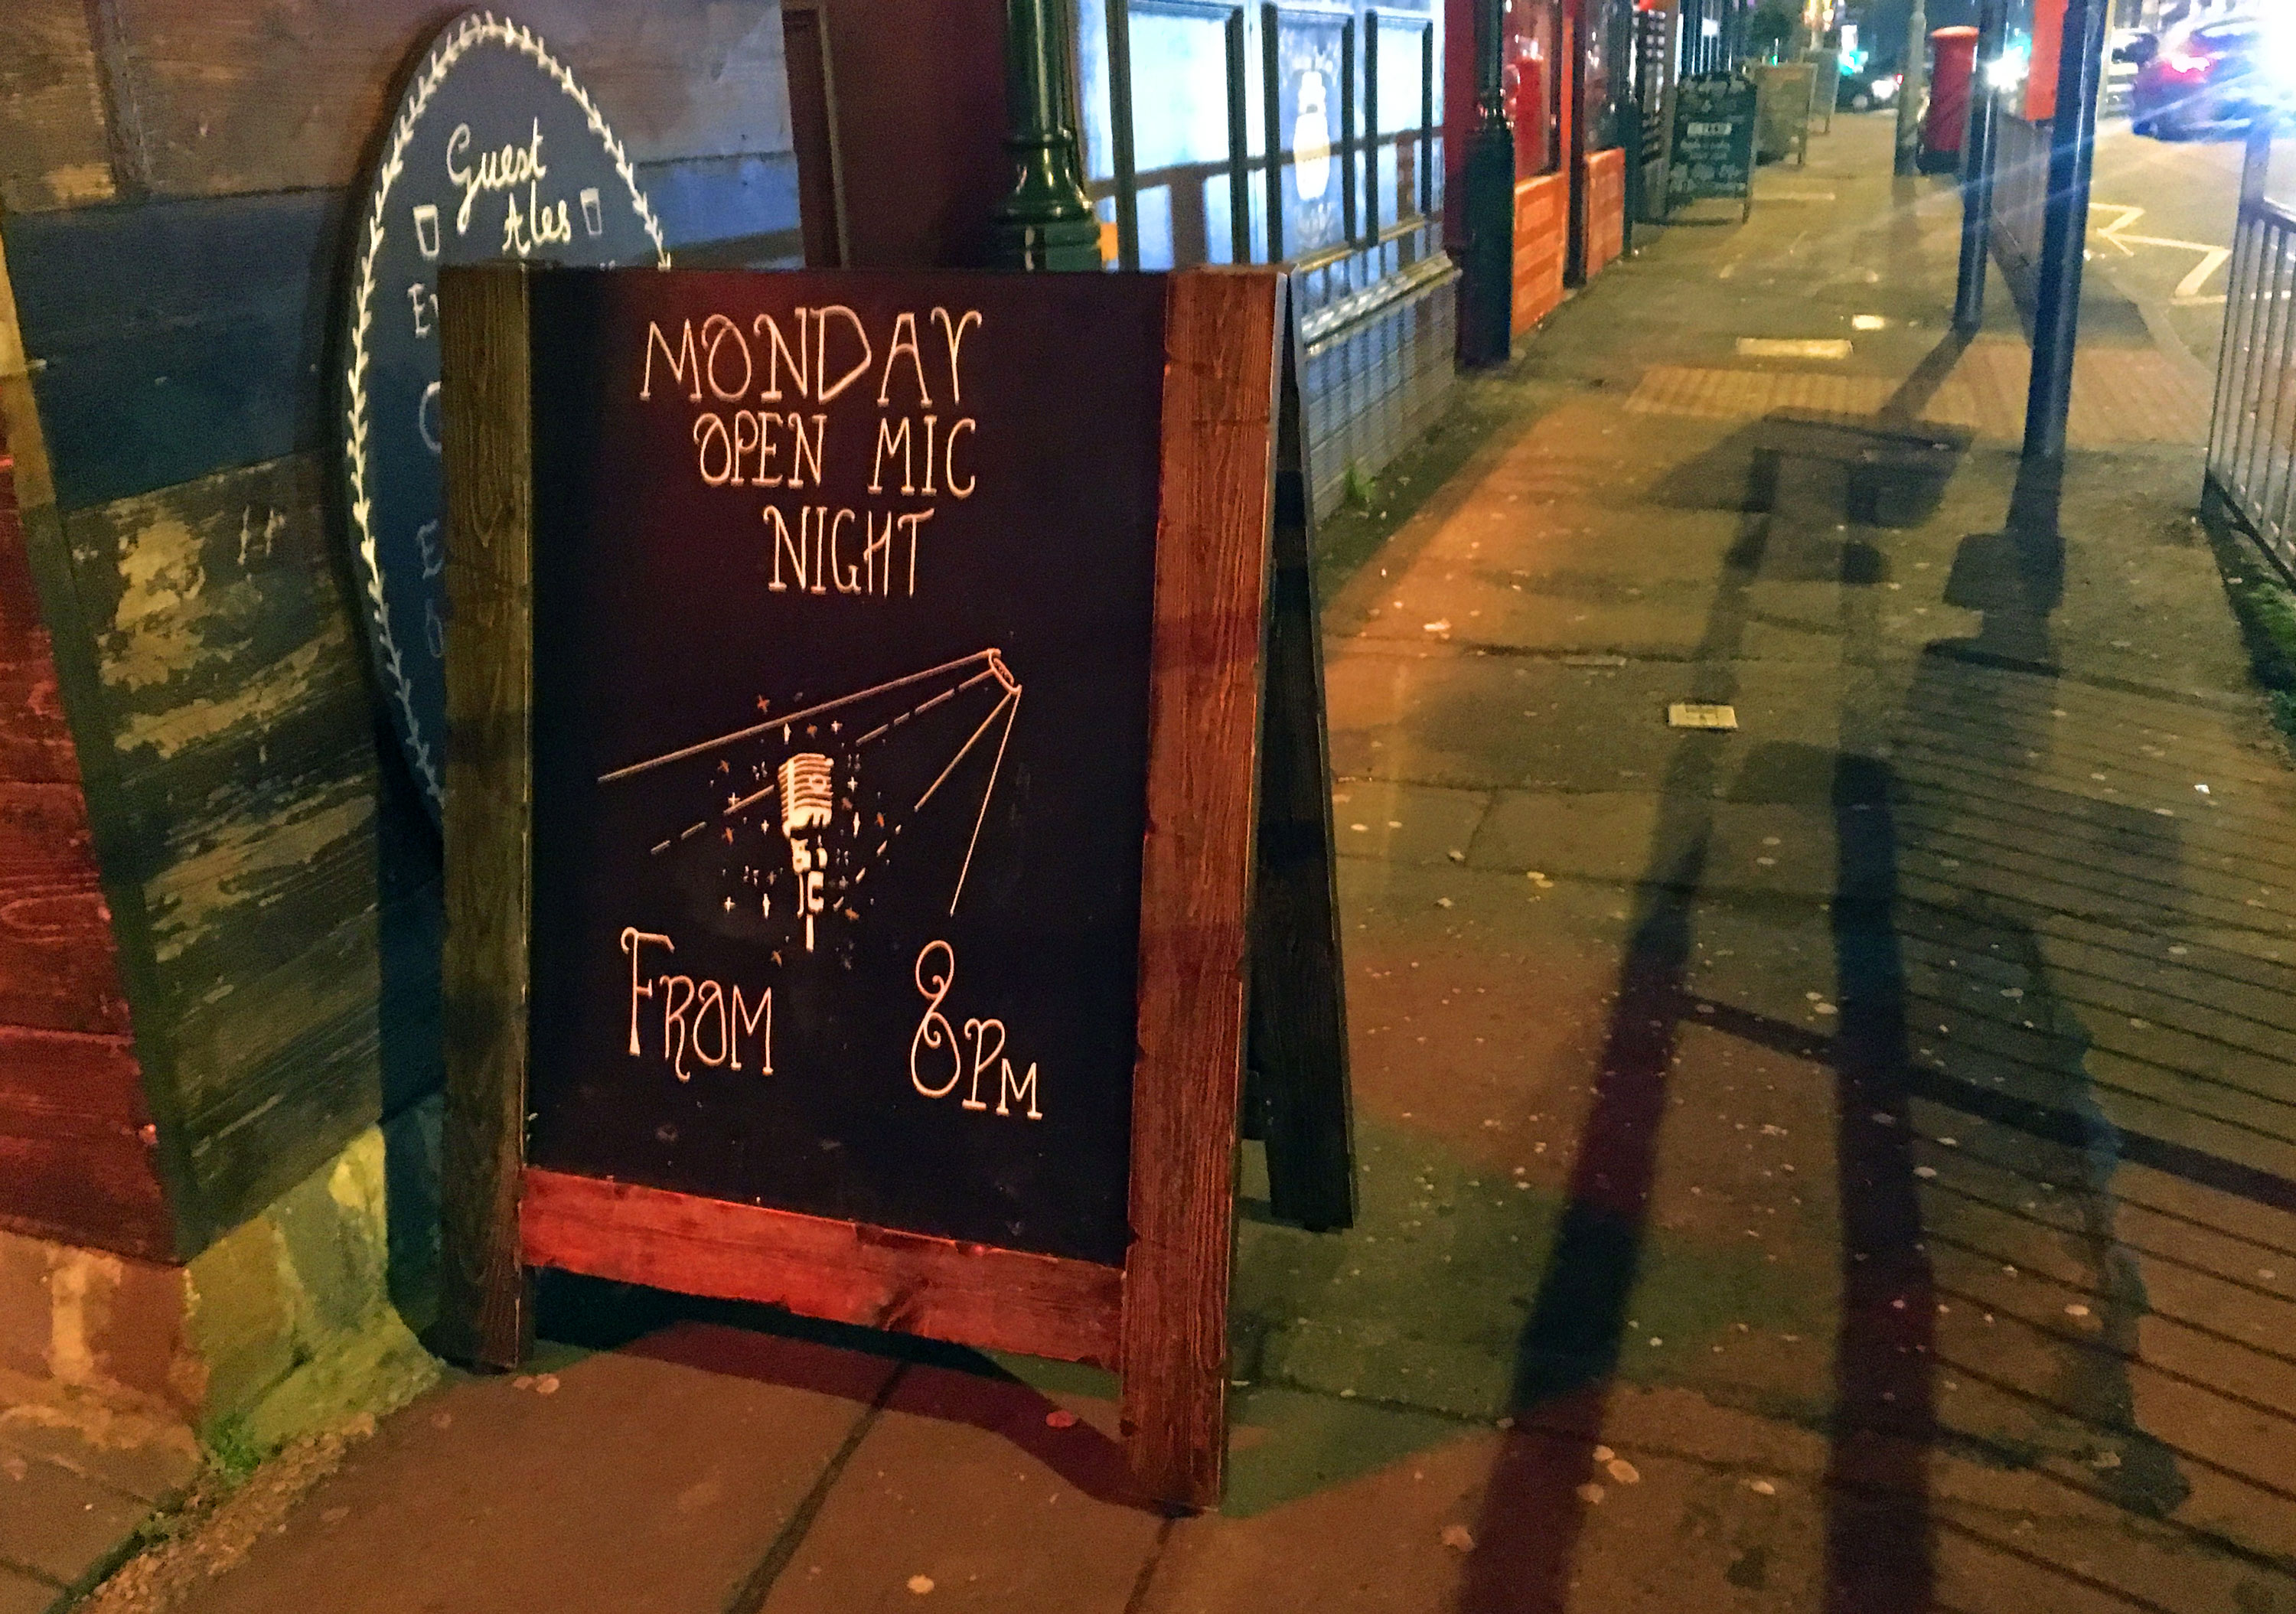 Guest
Ales
MONDAY
OPEN MIC
NIGHT
FROM 8PM